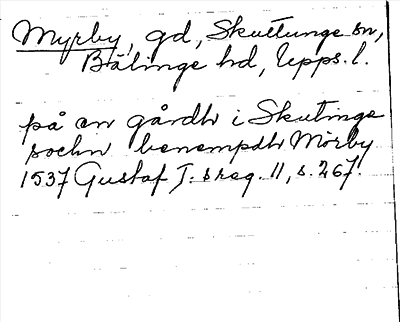 Myrby, gd, Skuttunge sn,
Bälinge hd, Upps. l.
på en gårdh i Skutinge
sochn benempdh Mörby
1537 Gustaf I:s reg. 11, s. 267.